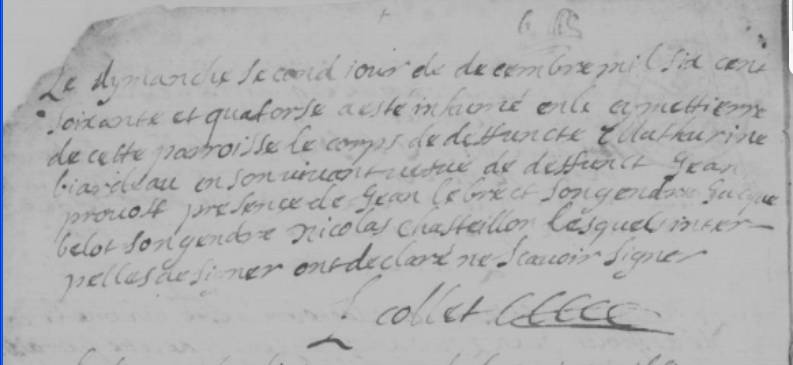 Le dymanche second iour de decembre mil six cent
soixante et quatorse a esté inhumé en le cymettierre
de cette parroisse le corps de deffuncte Mathurine
biardeau en son vivant vefue de deffunct Jean
provost presence de Jean lebrect son gendre Jacque
belot son gendre nicolas Chasteillon lesquels inter-
pelles de signer ont declaré ne scavoir signer
collet